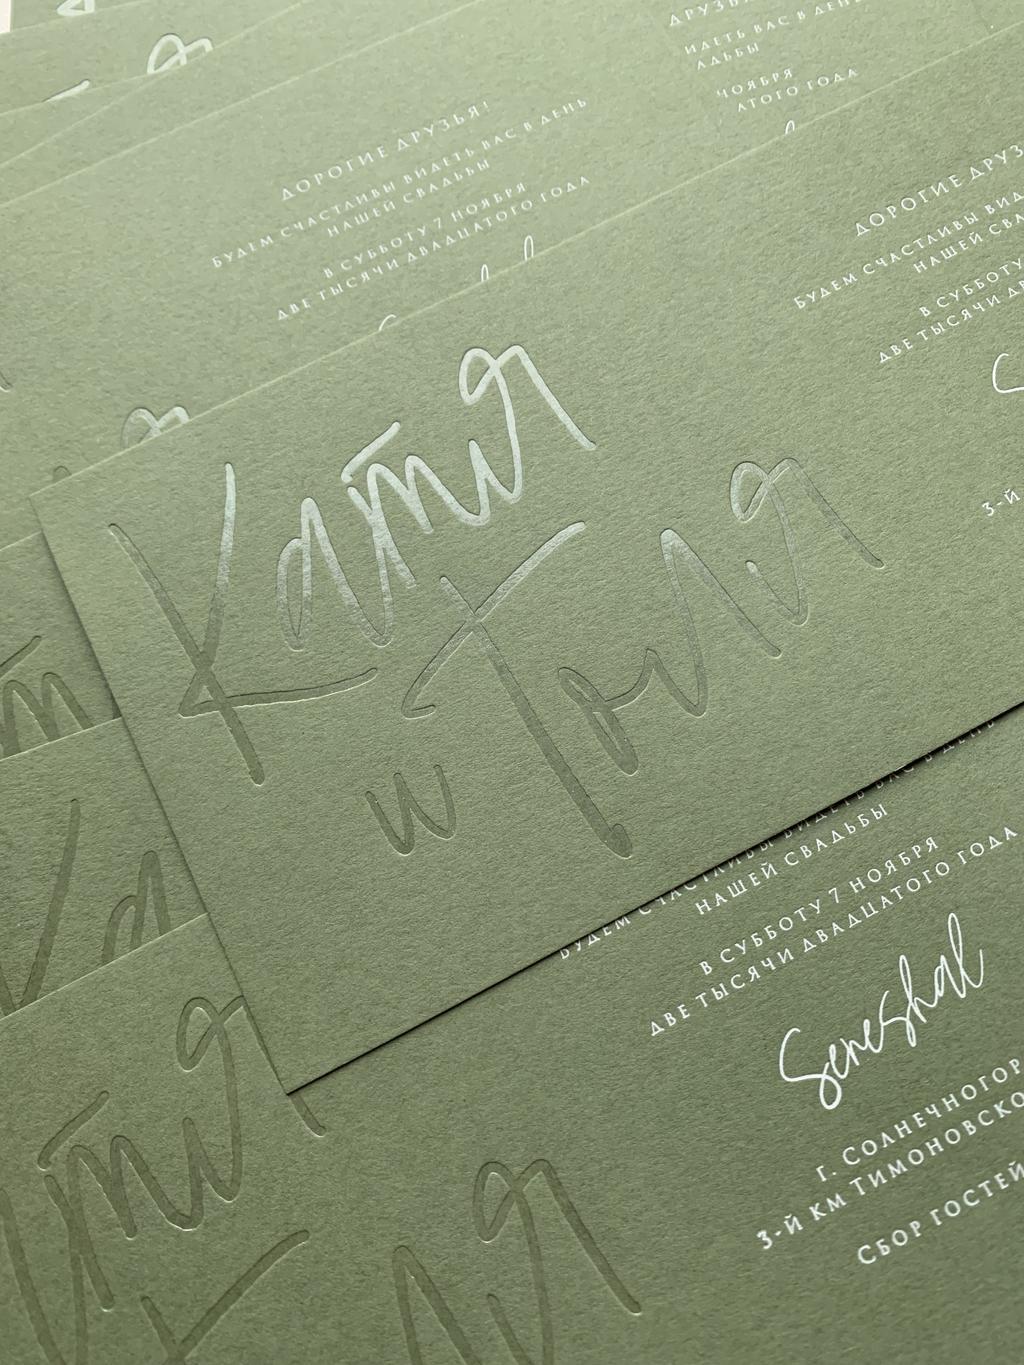 ДРУЗЬ
ИДЕТЬ ВАС В ДЕНЬ
АДЬБЫ
НОЯБРЯ
АТОГО ГОДА
ДОРОГИЕ ДРУЗЬЯ!
БУДЕМ СЧАСТЛИВЫ ВИДЕТЬ ВАС В ДЕНЬ
НАШЕЙ СВАДЬБЫ
В СУББОТУ 7 НОЯБРЯ
ДВЕ ТЫСЯЧИ ДВАДЦАТОГО ГОДА
Катя
и Толя
ДОРОГИЕ ДРУЗ
БУДЕМ СЧАСТЛИВЫ ВИД
НАШЕЙ СВА
В СУББОТУ
ДВЕ ТЫСЯЧИ ДВ
3-Й
БУДЕМ СЧАСТЛИВЫ ВИДЕТЬ ВАС В ДЕНЬ
НАШЕЙ СВАДЬБЫ
В СУББОТУ 7 НОЯБРЯ
ДВЕ ТЫСЯЧИ ДВАДЦАТОГО ГОДА
Seneshal
Г. СОЛНЕЧНОГОР
3-Й КМ ТИМОНОВСКО
СБОР ГОСТЕЙ